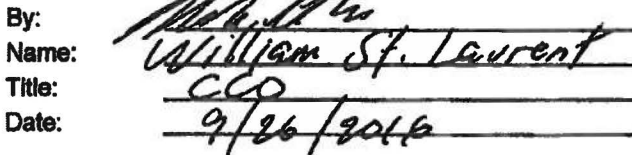 By:
Name: William St. Laurent
Title: CCO
Date: 9/26/2016